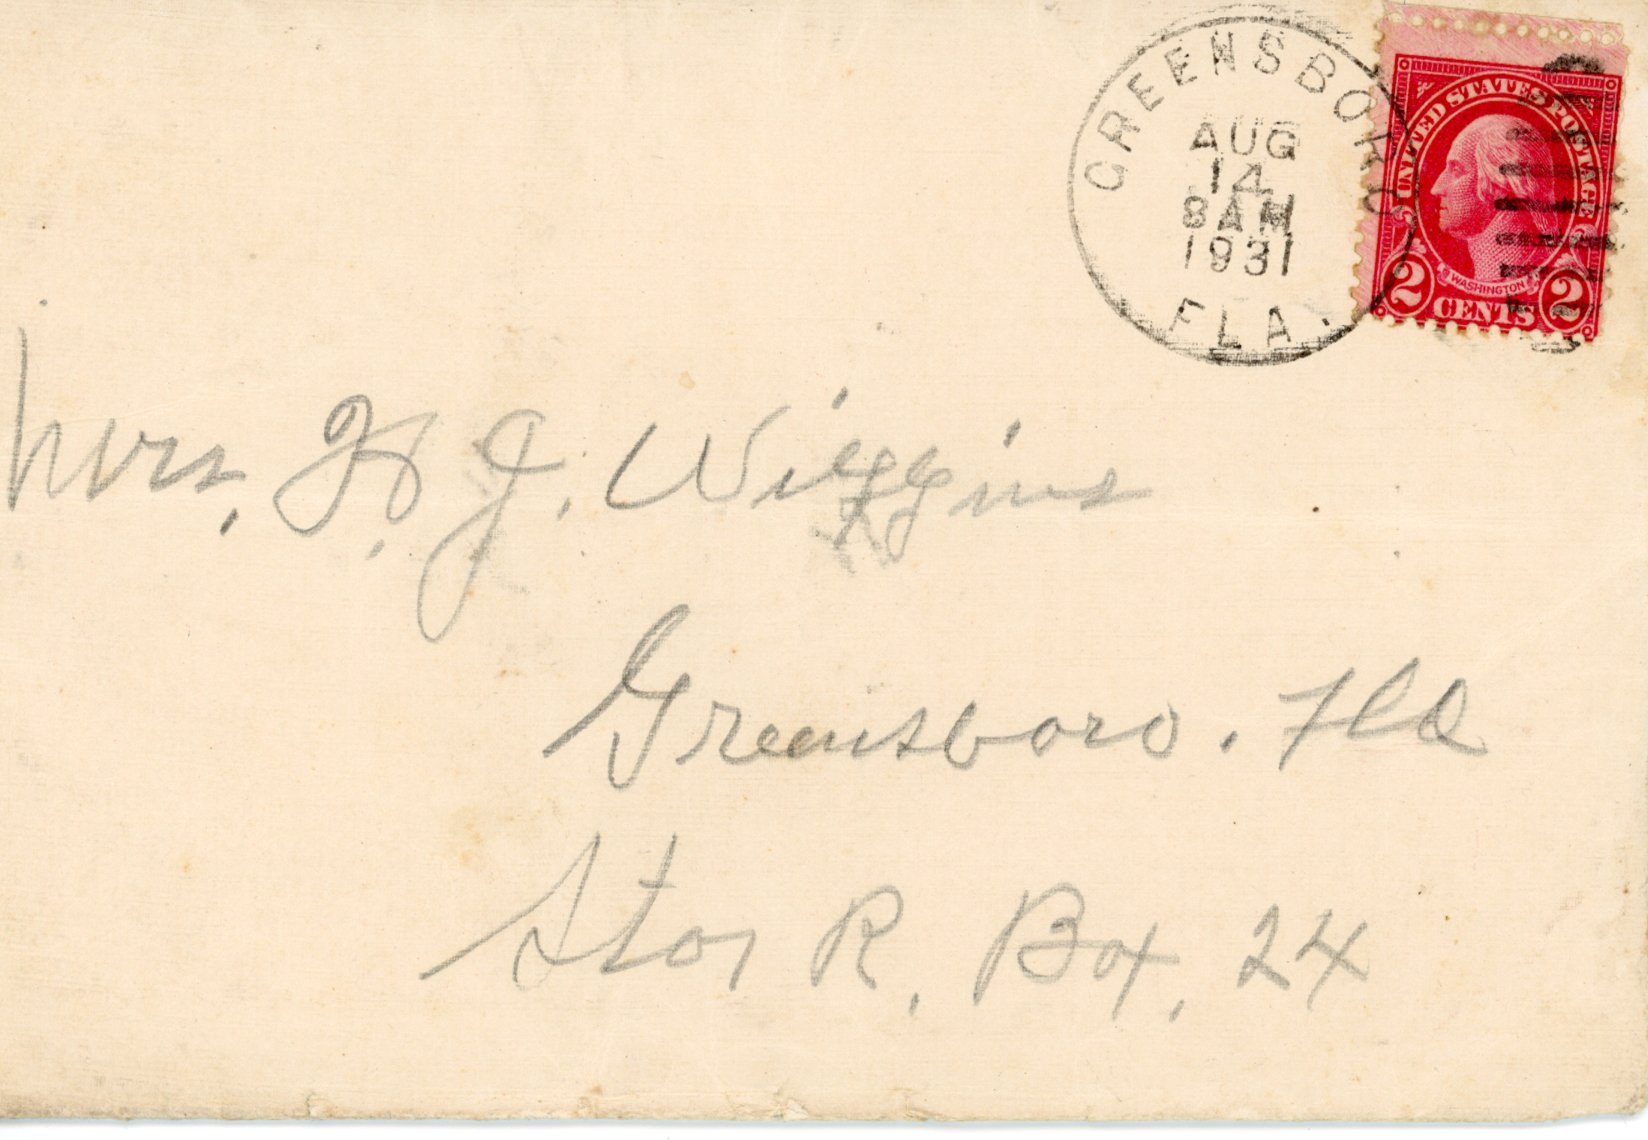 GREENSBORO
AUG
14
8 AM
1931
FLA.
UNITED STATES POSTAGE
WASHINGTON
2 CENTS 2
Mrs. H. J. Wiggins
Greensboro. Fla
Star R. Box, 24